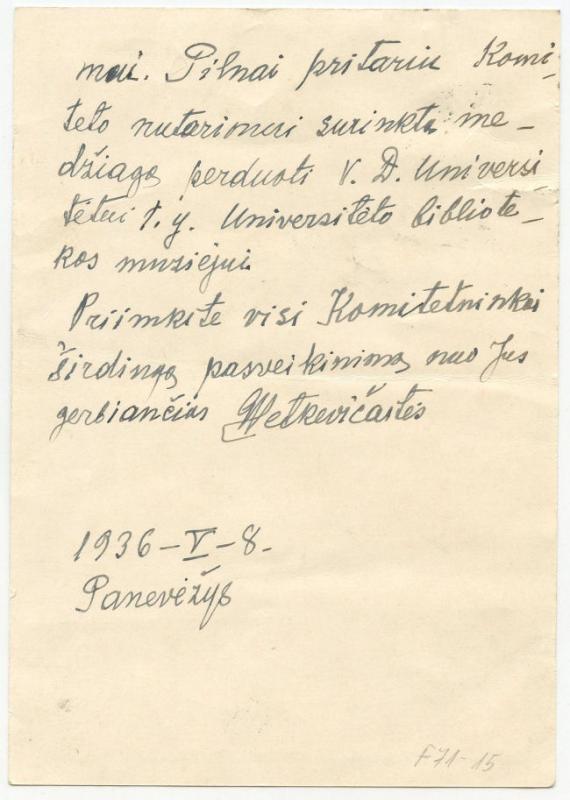 mui. Pilnai pritariu Komi-
teto nutarimui surinktą me-
džiagą perduoti V. D. Universi
tetui t. y. Universitėto bibliote-
kos muziejui.
Priimkite visi Komitetninkai
širdingą pasveikinimą nuo Jus
gerbiančios Petkevičaitės
1936-V-8.
Panevėžys
F71-15